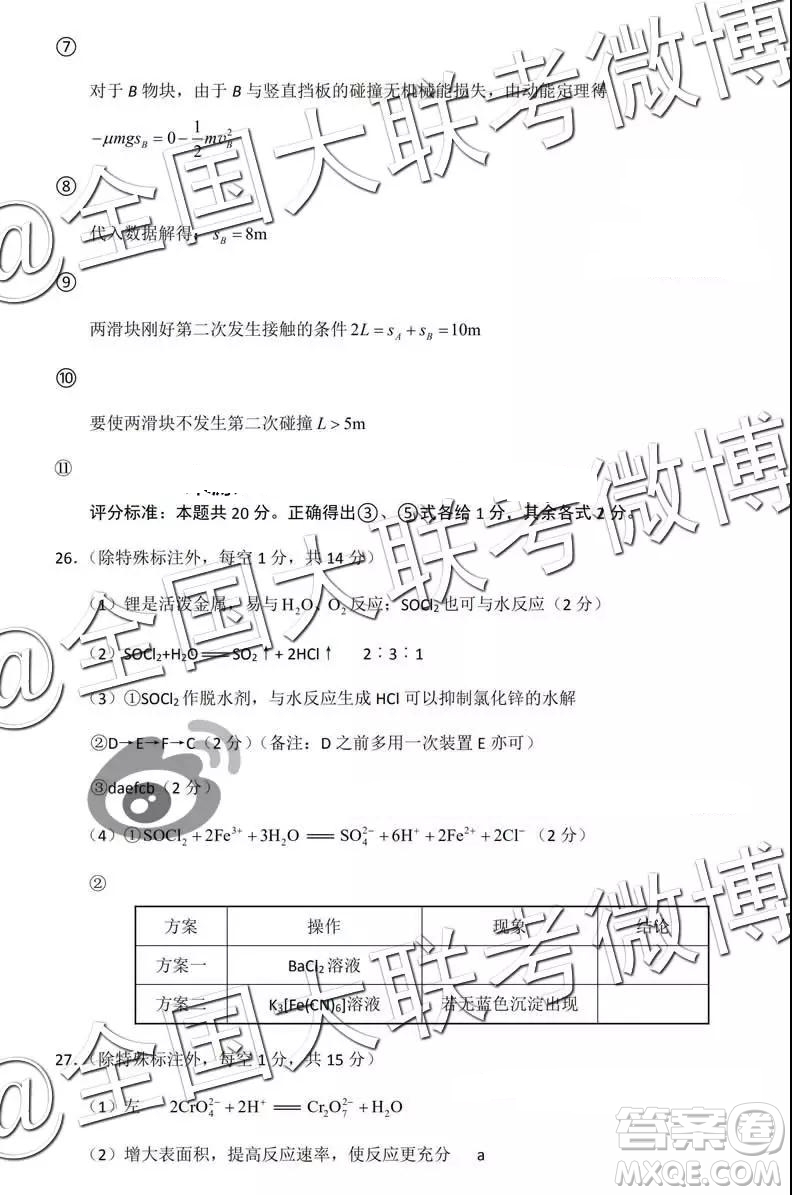 ⑦
对于 B 物块，由于 B 与竖直挡板的碰撞无机械能损失，由动能定理得
−μmgs_B = 0 − 1/2 mv_B²
⑧
代入数据解得：s_B = 8m
⑨
两滑块刚好第二次发生接触的条件 2L = s_A + s_B = 10m
⑩
要使两滑块不发生第二次碰撞 L > 5m
⑪
评分标准：本题共 20 分。正确得出③、⑤式各给 1 分，其余各式 2 分。
26．（除特殊标注外，每空 1 分，共 14 分）
（1）锂是活泼金属，易与 H₂O、O₂ 反应；SOCl₂ 也可与水反应（2 分）
（2）SOCl₂+H₂O═SO₂↑+ 2HCl↑ 2∶3∶1
（3）①SOCl₂ 作脱水剂，与水反应生成 HCl 可以抑制氯化锌的水解
②D→E→F→C（2 分）（备注：D 之前多用一次装置 E 亦可）
③daefcb（2 分）
（4）①SOCl₂ + 2Fe³⁺ + 3H₂O ═ SO₄²⁻ + 6H⁺ + 2Fe²⁺ + 2Cl⁻（2 分）
②
方案 操作 现象 结论
方案一 BaCl₂ 溶液
方案二 K₃[Fe(CN)₆]溶液 若无蓝色沉淀出现
27．（除特殊标注外，每空 1 分，共 15 分）
（1）左 2CrO₄²⁻ + 2H⁺ ═ Cr₂O₇²⁻ + H₂O
（2）增大表面积，提高反应速率，使反应更充分 a
@全国大联考微博
@全国大联考微博
@全国大联考微博
答案卷
MXQE.COM